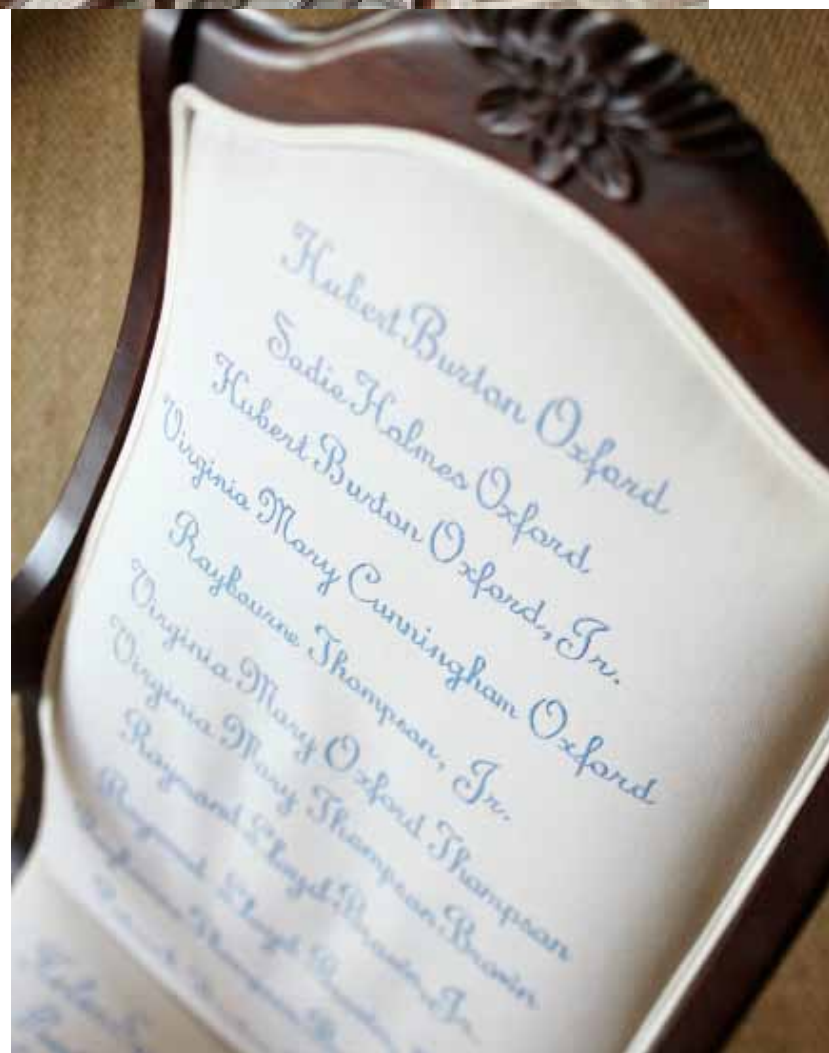 Hubert Burton Oxford
Sadie Holmes Oxford
Hubert Burton Oxford, Jr.
Virginia Mary Cunningham Oxford
Raybourne Thompson, Jr.
Virginia Mary Oxford Thompson
Virginia Mary Thompson Brown
Raymond Lloyd Brown, Jr.
Raymond Lloyd
Thompson
Helen